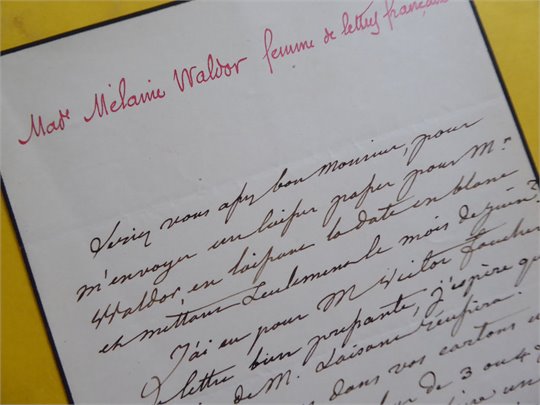 Made Mélanie Waldor femme de lettres française
Seriez vous assez bon Monsieur, pour
m'envoyer un laisser passer pour Mr
Waldor, en laissant la date en blanc
et mettant seulement le mois de juin?
J'ai eu pour M Victor Foucher
lettre bien pressante, j'espère que
de M. Laisané réussira.
dans vos cartons
de 3 ou 4